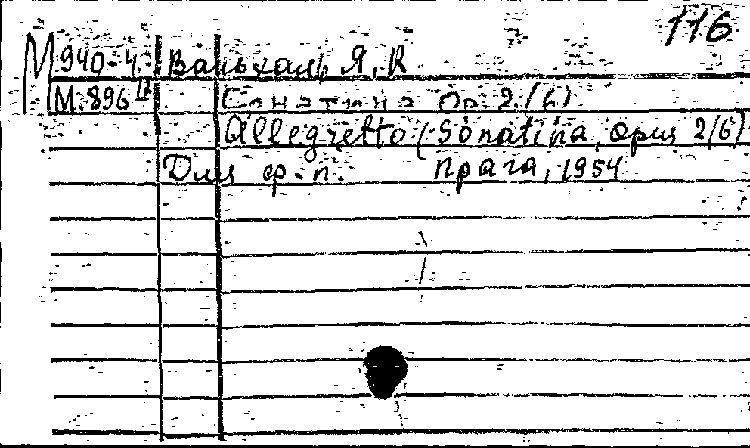 116
М 940-4 Ваньхаль, Я. К
М. 896 II Сонатина Op. 2 (6)
Allegretto (Sonatina, opus 2/6)
Для ф.-п. Прага, 1954